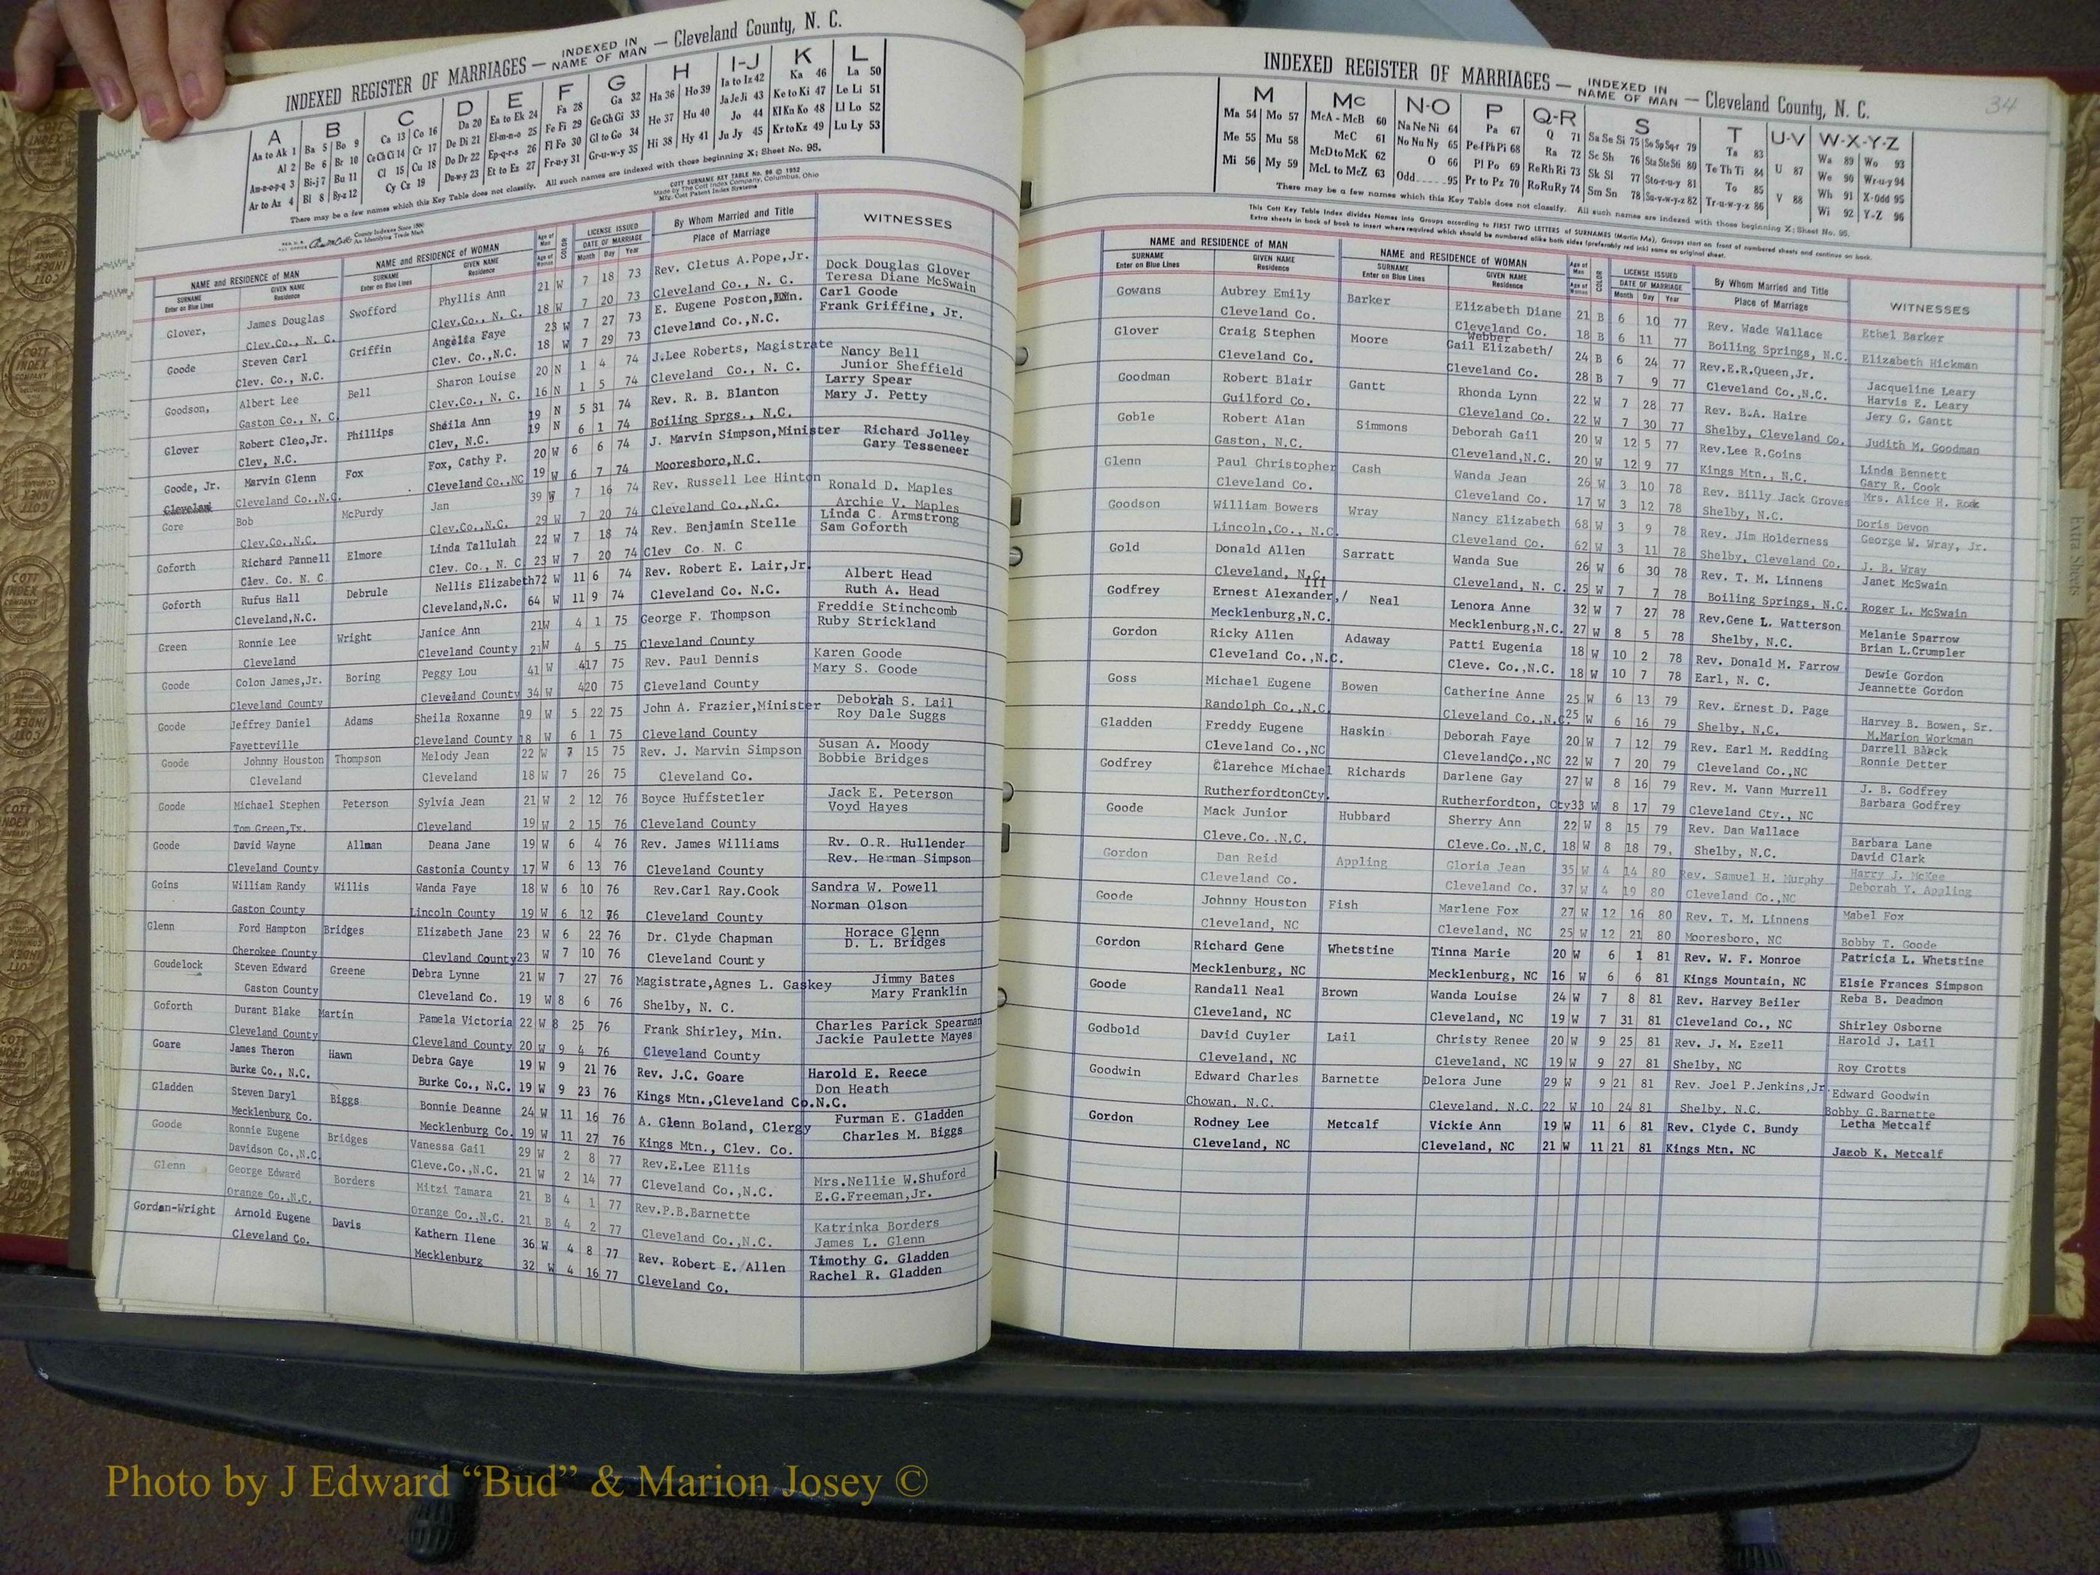 INDEXED REGISTER OF MARRIAGES — INDEXED IN NAME OF MAN — Cleveland County, N. C.
A B C D E F G H I-J K L
Aa to Ak 1 Ba 5 Bo 9 Ca 13 Co 16 Da 20 Ea to Ek 24 Fa 28 Ga 32 Ha 36 Ho 39 Ia to Iz 42 Ka 46 La 50
Al 2 Be 6 Br 10 Ce Ch Ci 14 Cr 17 De Di 21 El-m-n-o 25 Fe Fi 29 Ge Gh Gi 33 He 37 Hu 40 Ja Je Ji 43 Ke to Ki 47 Le Li 51
Am-n-o-p-q 3 Bi-j 7 Bu 11 Cl 15 Cu 18 Do Dr 22 Ep-q-r-s 26 Fl Fo 30 Gl to Go 34 Hi 38 Hy 41 Jo 44 Kl Kn Ko 48 Ll Lo 52
Ar to Az 4 Bl 8 By-z 12 Cy Cz 19 Du-w-y 23 Et to Ez 27 Fr-u-y 31 Gr-u-w-y 35 Ju Jy 45 Kr to Kz 49 Lu Ly 53
There may be a few names which this Key Table does not classify. All such names are indexed with those beginning X; Sheet No. 95.
COTT SURNAME KEY TABLE No. 96 © 1952
Made by The Cott Index Company, Columbus, Ohio
NAME and RESIDENCE of MAN NAME and RESIDENCE of WOMAN Age of Man Age of Woman COLOR LICENSE ISSUED DATE OF MARRIAGE By Whom Married and Title WITNESSES
SURNAME Enter on Blue Lines GIVEN NAME Residence SURNAME Enter on Blue Lines GIVEN NAME Residence Month Day Year Place of Marriage
Glover, James Douglas Swofford Phyllis Ann 21 W 7 18 73 Rev. Cletus A.Pope,Jr. Dock Douglas Glover
Clev.Co., N. C. Clev.Co., N. C. 18 W 7 20 73 Cleveland Co., N. C. Teresa Diane McSwain
Goode Steven Carl Griffin Angelia Faye 23 W 7 27 73 E. Eugene Poston, Carl Goode
Clev. Co., N.C. Clev. Co.,N.C. 18 W 7 29 73 Cleveland Co.,N.C. Frank Griffine, Jr.
Goodson, Albert Lee Bell Sharon Louise 20 N 1 4 74 J.Lee Roberts, Magistrate Nancy Bell
Gaston Co., N. C. Clev.Co., N. C. 16 N 1 5 74 Cleveland Co., N. C. Junior Sheffield
Glover Robert Cleo,Jr. Phillips Sheila Ann 19 N 5 31 74 Rev. R. B. Blanton Larry Spear
Clev, N.C. Clev, N.C. 19 N 6 1 74 Boiling Sprgs., N.C. Mary J. Petty
Goode, Jr. Marvin Glenn Fox Fox, Cathy P. 20 W 6 6 74 J. Marvin Simpson,Minister Richard Jolley
Cleveland Co.,N.C. Cleveland Co.,NC 19 W 6 7 74 Mooresboro,N.C. Gary Tesseneer
Gore Bob McPurdy Jan 39 W 7 16 74 Rev. Russell Lee Hinton Ronald D. Maples
Clev.Co.,N.C. Clev.Co.,N.C. 29 W 7 20 74 Cleveland Co.,N.C. Archie V. Maples
Goforth Richard Pannell Elmore Linda Tallulah 22 W 7 18 74 Rev. Benjamin Stelle Linda C. Armstrong
Clev. Co. N. C Clev. Co., N. C 23 W 7 20 74 Clev Co. N. C Sam Goforth
Goforth Rufus Hall Debrule Nellis Elizabeth 72 W 11 6 74 Rev. Robert E. Lair,Jr Albert Head
Cleveland,N.C. Cleveland,N.C. 64 W 11 9 74 Cleveland Co. N.C. Ruth A. Head
Green Ronnie Lee Wright Janice Ann 21 W 4 1 75 George F. Thompson Freddie Stinchcomb
Cleveland Cleveland County 21 W 4 5 75 Cleveland County Ruby Strickland
Goode Colon James,Jr. Boring Peggy Lou 41 W 4 17 75 Rev. Paul Dennis Karen Goode
Cleveland County Cleveland County 34 W 4 20 75 Cleveland County Mary S. Goode
Goode Jeffrey Daniel Adams Sheila Roxanne 19 W 5 22 75 John A. Frazier,Minister Deborah S. Lail
Fayetteville Cleveland County 18 W 6 1 75 Cleveland County Roy Dale Suggs
Goode Johnny Houston Thompson Melody Jean 22 W 7 15 75 Rev. J. Marvin Simpson Susan A. Moody
Cleveland Cleveland 18 W 7 26 75 Cleveland Co. Bobbie Bridges
Goode Michael Stephen Peterson Sylvia Jean 21 W 2 12 76 Boyce Huffstetler Jack E. Peterson
Tom Green,Tx. Cleveland 19 W 2 15 76 Cleveland County Voyd Hayes
Goode David Wayne Allman Deana Jane 19 W 6 4 76 Rev. James Williams Rv. O.R. Hullender
Cleveland County Gastonia County 17 W 6 13 76 Cleveland County Rev. Herman Simpson
Goins William Randy Willis Wanda Faye 18 W 6 10 76 Rev.Carl Ray.Cook Sandra W. Powell
Gaston County Lincoln County 19 W 6 12 76 Cleveland County Norman Olson
Glenn Ford Hampton Bridges Elizabeth Jane 23 W 6 22 76 Dr. Clyde Chapman Horace Glenn
Cherokee County Clevland County 23 W 7 10 76 Cleveland County D. L. Bridges
Goudelock Steven Edward Greene Debra Lynne 21 W 7 27 76 Magistrate,Agnes L. Gaskey Jimmy Bates
Gaston County Cleveland Co. 19 W 8 6 76 Shelby, N. C. Mary Franklin
Goforth Durant Blake Martin Pamela Victoria 22 W 8 25 76 Frank Shirley, Min. Charles Parick Spearman
Cleveland County Cleveland County 20 W 9 4 76 Cleveland County Jackie Paulette Mayes
Goare James Theron Hawn Debra Gaye 19 W 9 21 76 Rev. J.C. Goare Harold E. Reece
Burke Co., N.C. Burke Co., N.C. 19 W 9 23 76 Kings Mtn.,Cleveland Co.N.C. Don Heath
Gladden Steven Daryl Biggs Bonnie Deanne 24 W 11 16 76 A. Glenn Boland, Clergy Furman E. Gladden
Mecklenburg Co. Mecklenburg Co. 19 W 11 27 76 Kings Mtn., Clev. Co. Charles M. Biggs
Goode Ronnie Eugene Bridges Vanessa Gail 29 W 2 8 77 Rev.E.Lee Ellis Mrs.Nellie W.Shuford
Davidson Co.,N.C. Cleve.Co.,N.C. 21 W 2 14 77 Cleveland Co.,N.C. E.G.Freeman,Jr.
Glenn George Edward Borders Mitzi Tamara 21 B 4 1 77 Rev.P.B.Barnette Katrinka Borders
Orange Co.,N.C. Orange Co.,N.C. 21 B 4 2 77 Cleveland Co.,N.C. James L. Glenn
Gordan-Wright Arnold Eugene Davis Kathern Ilene 36 W 4 8 77 Rev. Robert E. Allen Timothy G. Gladden
Cleveland Co. Mecklenburg 32 W 4 16 77 Cleveland Co. Rachel R. Gladden
34
INDEXED REGISTER OF MARRIAGES — INDEXED IN NAME OF MAN — Cleveland County, N. C.
M Mc N-O P Q-R S T U-V W-X-Y-Z
Ma 54 Mo 57 McA - McB 60 Na Ne Ni 64 Pa 67 Q 71 Sa Se Si 75 So Sp Sq-r 79 Ta 83 Wa 89 Wo 93
Me 55 Mu 58 McC 61 No Nu Ny 65 Pe-f Ph Pi 68 Ra 72 Sc Sh 76 Sta Ste Sti 80 Te Th Ti 84 U 87 We 90 Wr-u-y 94
Mi 56 My 59 McD to McK 62 O 66 Pl Po 69 Re Rh Ri 73 Sk Sl 77 Sto-r-u-y 81 To 85 Wh 91 X-Odd 95
McL to McZ 63 Odd 95 Pr to Pz 70 Ro Ru Ry 74 Sm Sn 78 Su-v-w-y-z 82 Tr-u-w-y-z 86 V 88 Wi 92 Y-Z 96
There may be a few names which this Key Table does not classify. All such names are indexed with those beginning X; Sheet No. 95.
This Cott Key Table Index divides Names into Groups according to FIRST TWO LETTERS of SURNAMES (Martin Ma), Groups start on front of numbered sheets and continue on back.
Extra sheets in back of book to insert where required which should be numbered alike both sides (preferably red ink) same as original sheet.
NAME and RESIDENCE of MAN NAME and RESIDENCE of WOMAN Age of Man Age of Woman COLOR LICENSE ISSUED DATE OF MARRIAGE By Whom Married and Title WITNESSES
SURNAME Enter on Blue Lines GIVEN NAME Residence SURNAME Enter on Blue Lines GIVEN NAME Residence Month Day Year Place of Marriage
Gowans Aubrey Emily Barker Elizabeth Diane 21 B 6 10 77 Rev. Wade Wallace Ethel Barker
Cleveland Co. Cleveland Co. 18 B 6 11 77 Boiling Springs, N.C. Elizabeth Hickman
Glover Craig Stephen Moore Webber Gail Elizabeth/ 24 B 6 24 77 Rev.E.R.Queen,Jr. Jacqueline Leary
Cleveland Co. Cleveland Co. 28 B 7 9 77 Cleveland Co.,N.C. Harvis E. Leary
Goodman Robert Blair Gantt Rhonda Lynn 22 W 7 28 77 Rev. B.A. Haire Jerry G. Gantt
Guilford Co. Cleveland Co. 22 W 7 30 77 Shelby, Cleveland Co. Judith M. Goodman
Goble Robert Alan Simmons Deborah Gail 20 W 12 5 77 Rev.Lee R.Goins Linda Bennett
Gaston, N.C. Cleveland,N.C. 20 W 12 9 77 Kings Mtn., N.C. Gary R. Cook
Glenn Paul Christopher Cash Wanda Jean 26 W 3 10 78 Rev. Billy Jack Groves Mrs. Alice H. Rook
Cleveland Co. Cleveland Co. 17 W 3 12 78 Shelby, N.C. Doris Devon
Goodson William Bowers Wray Nancy Elizabeth 68 W 3 9 78 Rev. Jim Holderness George W. Wray, Jr.
Lincoln,Co., N.C. Cleveland Co. 62 W 3 11 78 Shelby, Cleveland Co. J. B. Wray
Gold Donald Allen Sarratt Wanda Sue 26 W 6 30 78 Rev. T. M. Linnens Janet McSwain
Cleveland, N.C. Cleveland, N. C. 25 W 7 7 78 Boiling Springs, N.C. Roger L. McSwain
Godfrey Ernest Alexander,/ III Neal Lenora Anne 32 W 7 27 78 Rev.Gene L. Watterson Melanie Sparrow
Mecklenburg,N.C. Mecklenburg,N.C. 27 W 8 5 78 Shelby, N.C. Brian L.Crumpler
Gordon Ricky Allen Adaway Patti Eugenia 18 W 10 2 78 Rev. Donald M. Farrow Dewie Gordon
Cleveland Co.,N.C. Cleve. Co.,N.C. 18 W 10 7 78 Earl, N. C. Jeannette Gordon
Goss Michael Eugene Bowen Catherine Anne 25 W 6 13 79 Rev. Ernest D. Page Harvey B. Bowen, Sr.
Randolph Co.,N.C. Cleveland Co.,N.C. 25 W 6 16 79 Shelby, N.C. M.Marion Workman
Gladden Freddy Eugene Haskin Deborah Faye 20 W 7 12 79 Rev. Earl M. Redding Darrell
Cleveland Co.,NC ClevelandCo.,NC 22 W 7 20 79 Cleveland Co.,NC Ronnie Detter
Godfrey Clarence Michael Richards Darlene Gay 27 W 8 16 79 Rev. M. Vann Murrell J. B. Godfrey
RutherfordtonCty. Rutherfordton, Cty 33 W 8 17 79 Cleveland Cty., NC Barbara Godfrey
Goode Mack Junior Hubbard Sherry Ann 22 W 8 15 79 Rev. Dan Wallace Barbara Lane
Cleve.Co.,N.C. Cleve.Co.,N.C. 18 W 8 18 79, Shelby, N.C. David Clark
Gordon Dan Reid Appling Gloria Jean 35 W 4 14 80 Rev. Samuel H. Murphy Harry J. McKee
Cleveland Co. Cleveland Co. 37 W 4 19 80 Cleveland Co.,NC Deborah Y. Appling
Goode Johnny Houston Fish Marlene Fox 27 W 12 16 80 Rev. T. M. Linnens Mabel Fox
Cleveland, NC Cleveland, NC 25 W 12 21 80 Mooresboro, NC Bobby T. Goode
Gordon Richard Gene Whetstine Tinna Marie 20 W 6 1 81 Rev. W. F. Monroe Patricia L. Whetstine
Mecklenburg, NC Mecklenburg, NC 16 W 6 6 81 Kings Mountain, NC Elsie Frances Simpson
Goode Randall Neal Brown Wanda Louise 24 W 7 8 81 Rev. Harvey Beiler Reba B. Deadmon
Cleveland, NC Cleveland, NC 19 W 7 31 81 Cleveland Co., NC Shirley Osborne
Godbold David Cuyler Lail Christy Renee 20 W 9 25 81 Rev. J. M. Ezell Harold J. Lail
Cleveland, NC Cleveland, NC 19 W 9 27 81 Shelby, NC Roy Crotts
Goodwin Edward Charles Barnette Delora June 29 W 9 21 81 Rev. Joel P.Jenkins,Jr. Edward Goodwin
Chowan, N.C. Cleveland, N.C. 22 W 10 24 81 Shelby, N.C. Bobby G.Barnette
Gordon Rodney Lee Metcalf Vickie Ann 19 W 11 6 81 Rev. Clyde C. Bundy Letha Metcalf
Cleveland, NC Cleveland, NC 21 W 11 21 81 Kings Mtn. NC Jacob K. Metcalf
Extra Sheets
Photo by J Edward “Bud” & Marion Josey ©